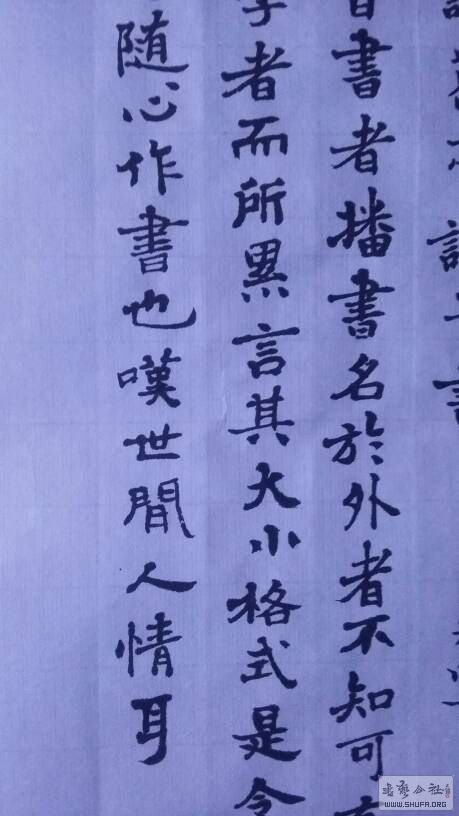 書
書者播書名於外者不知可
者而所累言其大小格式是令
隨心作書也嘆世間人情耳
書艺公社
WWW.SHUFA.ORG